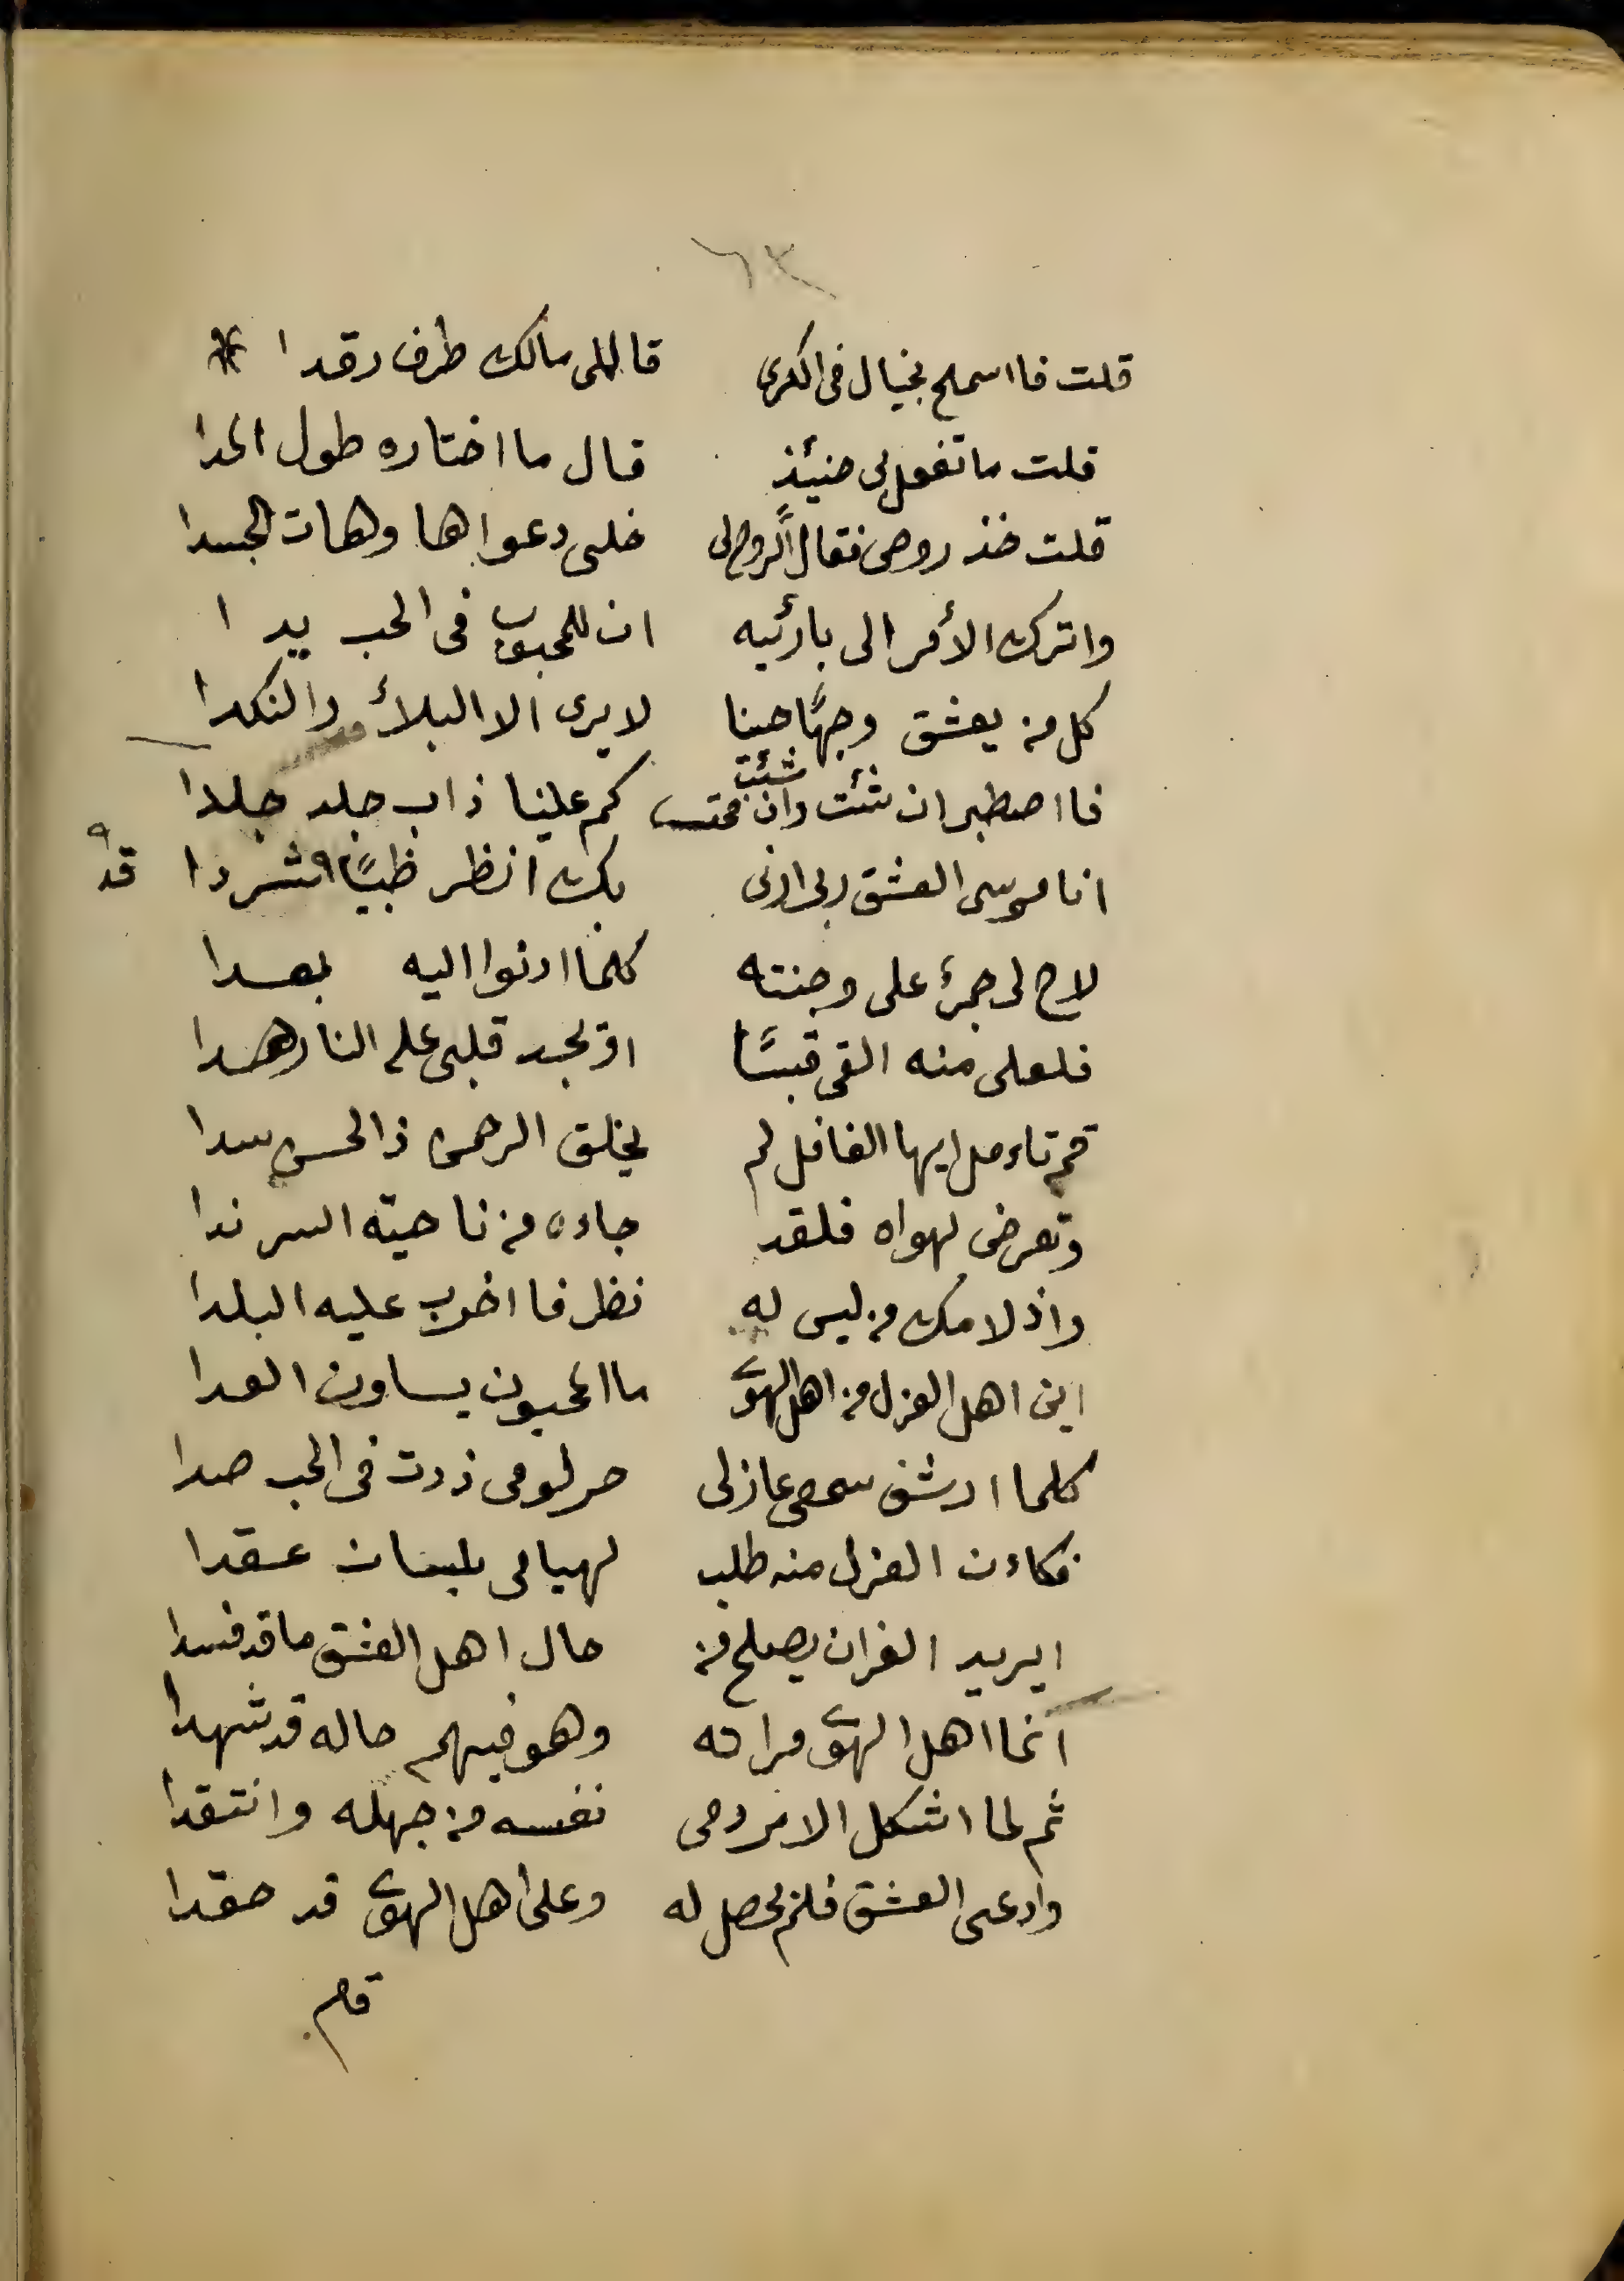 ٦٣
قلت فا اسملح بخيال فى الكرى قال لى مالك طرف رقدا *
قلت ما تفعل بى حنيئذ قال ما اختاره طول المدا
قلت خذ روحى فقال الروح لى خلى دعواها وهات الجسدا
واترك الأمر الى بارئيه ان للمحبوب فى الحب يدا
كل من يعشق وجهًا حسنا لا يرى الا البلأ والنكدا
فا اصطبر ان شئت وان شئت كم علينا ذاب جلد جلدا
انا موسى العشق ربى ارنى بك انظر ظبيًا شردا قد
لاح لى جمرٌ على وجنته كلما ادنوا اليه بعدا
فلعلى منه القى قبسًا او يجد قلبى على النار هدا
قم تاءمل ايها الغافل لم يخلق الرحمن ذا الحسن سدا
وتعرض لهواه فلقد جاءه من ناحية السر ندا
واذ لامك من ليس له نظر فا اخرب عليه البلدا
اين اهل العزل من اهل الهوى ما المحبون يساون العدا
كلما ارشف سمعى عازلى حر لومى زدت فى الحب صدا
فكاءن العزل منه طلب لهيامى بلسان عقدا
ايريد الغران يصلح من حال اهل العشق ما قد فسدا
انما اهل الهوى مراته وهو فيهم حاله قد شهدا
ثم لما اشكل الامر رمى نفسه من جهله وانتقدا
وادعى العشق فلم يحصل له وعلى اهل الهوى قد حقدا
قام